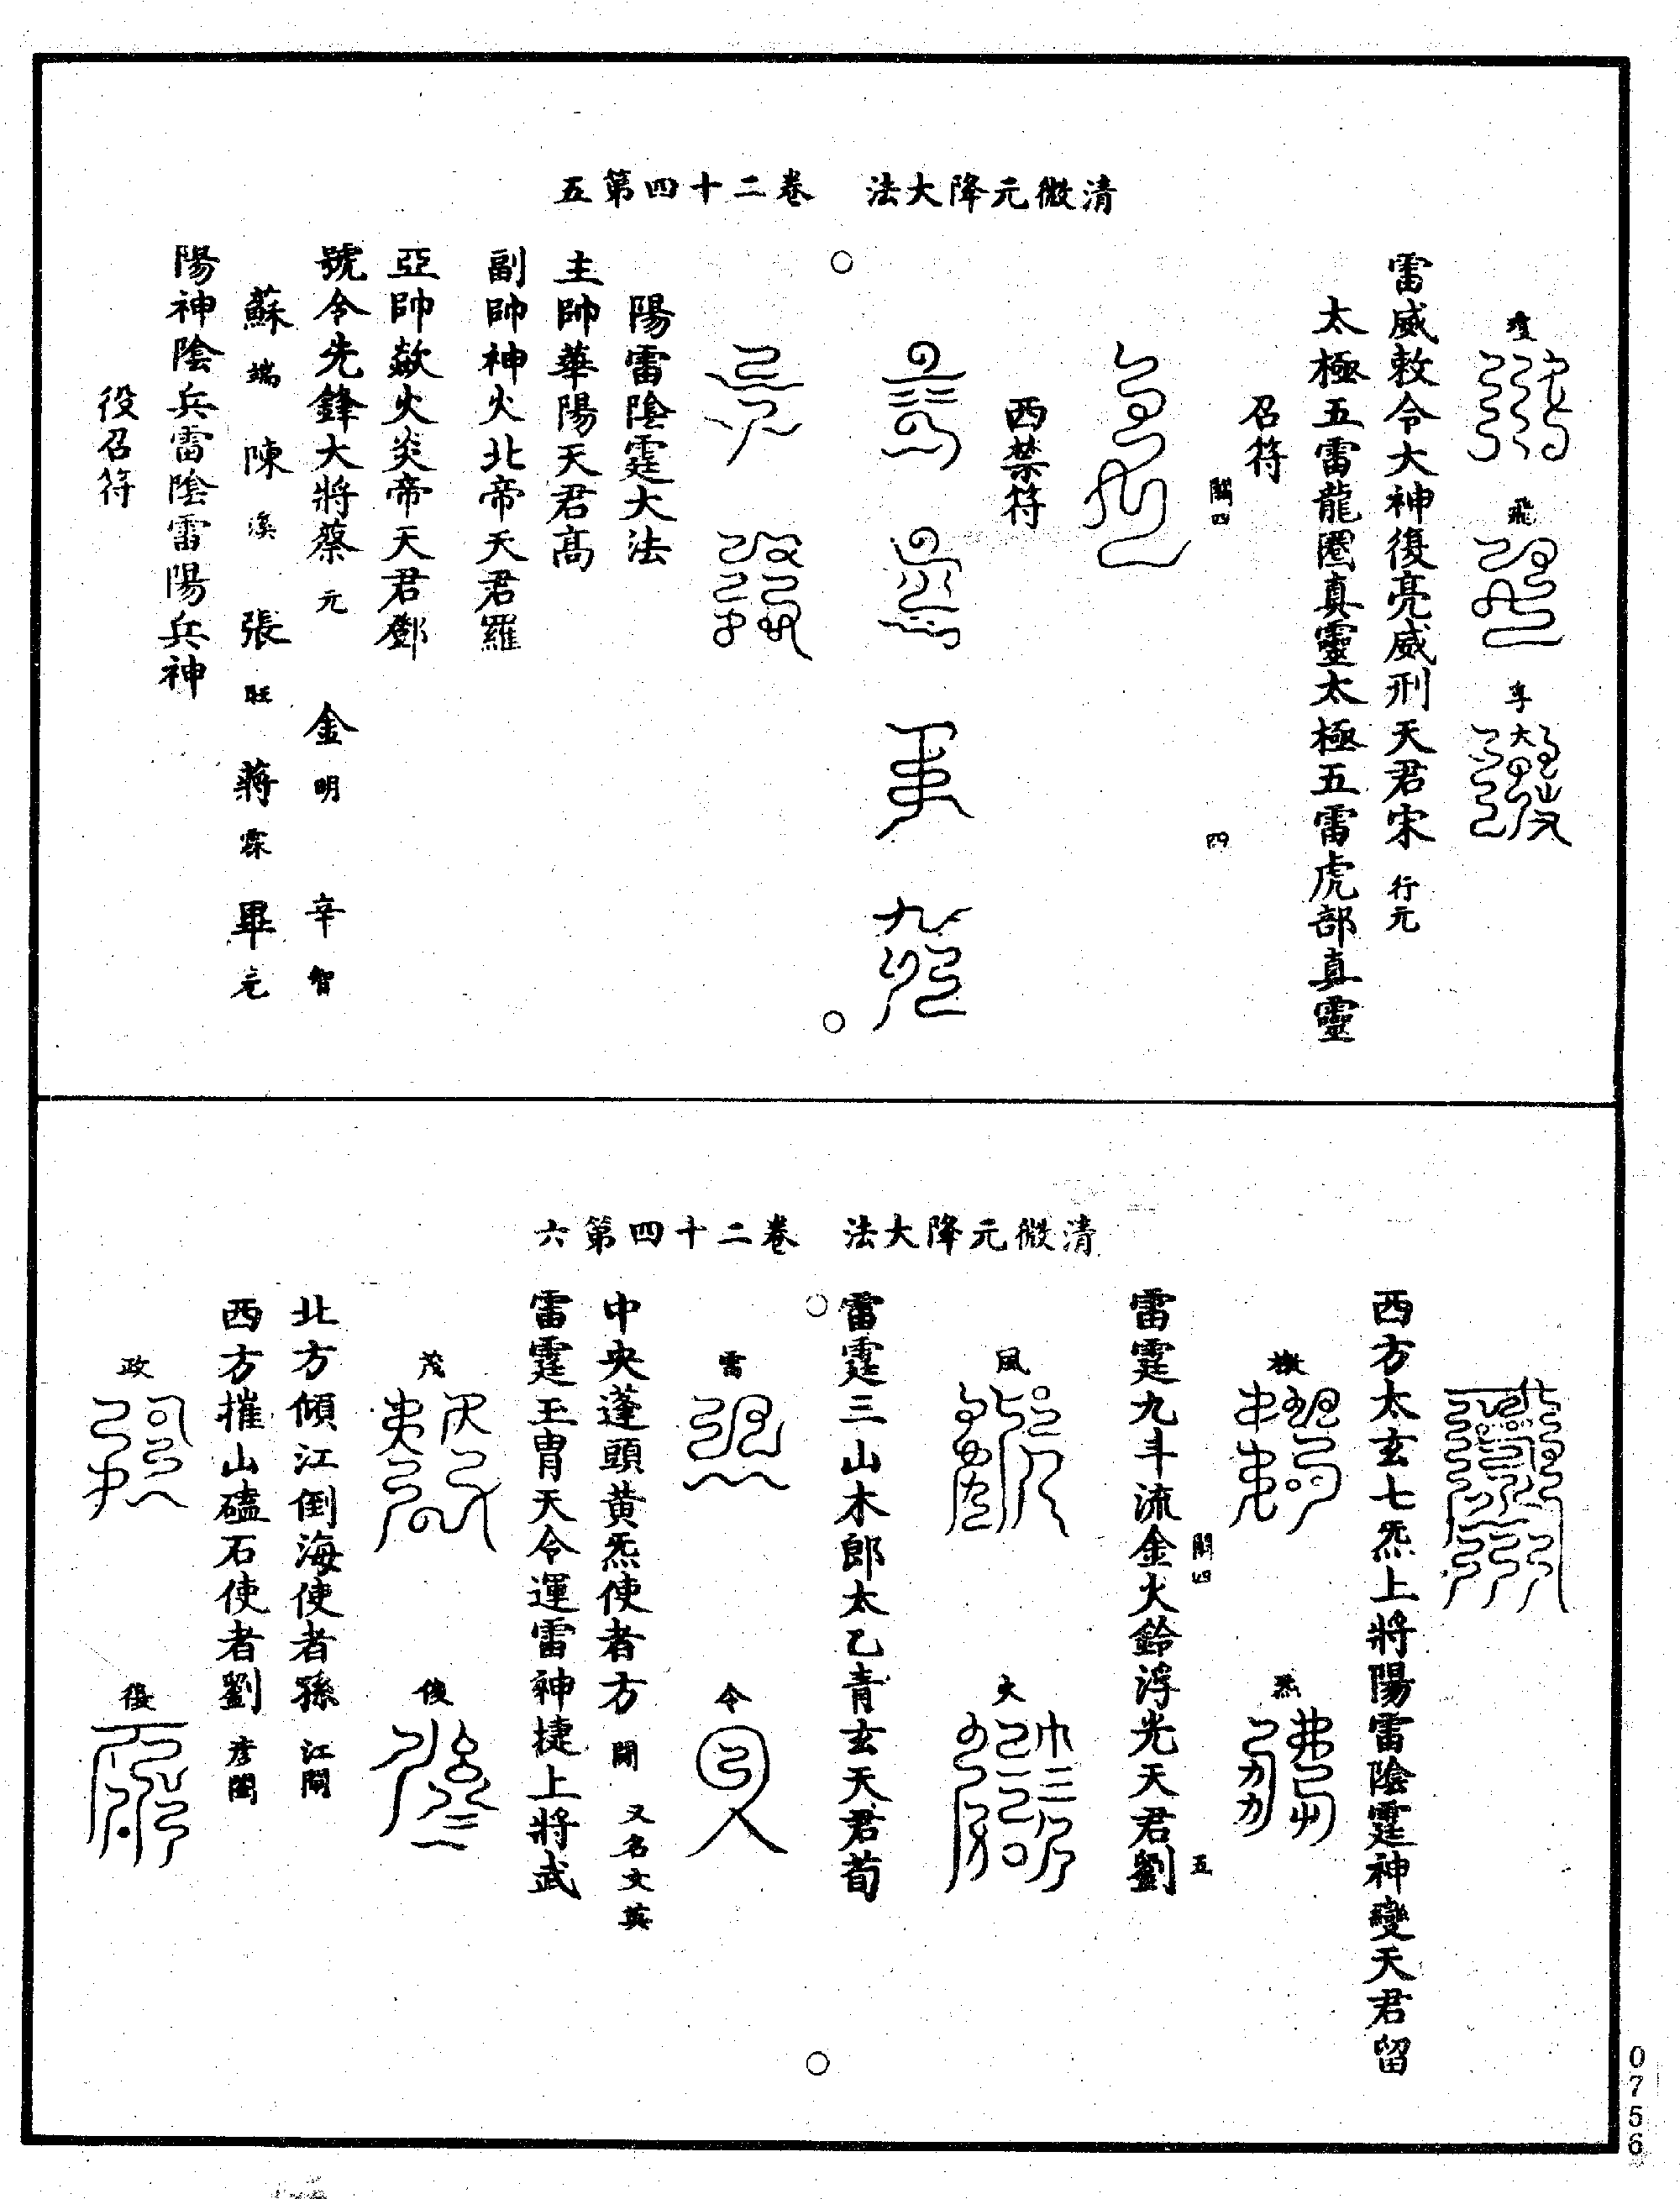 清微元降大法　卷二十四第五
瓊　飛　孚
雷威敕令大神復亮威刑天君宋行元
太極五雷龍圈真靈太極五雷虎部真靈
召符
關四　四
西禁符
陽雷陰霆大法
主帥華陽天君高
副帥神火北帝天君羅
亞帥欻火炎帝天君鄧
號令先鋒大將蔡元　金明　辛智
蘇端　陳溪　張旺　蔣霖　畢元
陽神陰兵雷陰雷陽兵神
役召符
清微元降大法　卷二十四第六
西方太玄七炁上將陽雷陰霆神變天君留
檄　炁
關四　五
雷霆九斗流金火鈴浮光天君劉
風　火
雷霆三山木郎太乙青玄天君荀
雷　令
中央蓬頭黃炁使者方開　又名文英
雷霆玉胄天令運雷神捷上將武
茂　俊
北方傾江倒海使者孫江閻
西方摧山磕石使者劉彥閶
政　復
0756